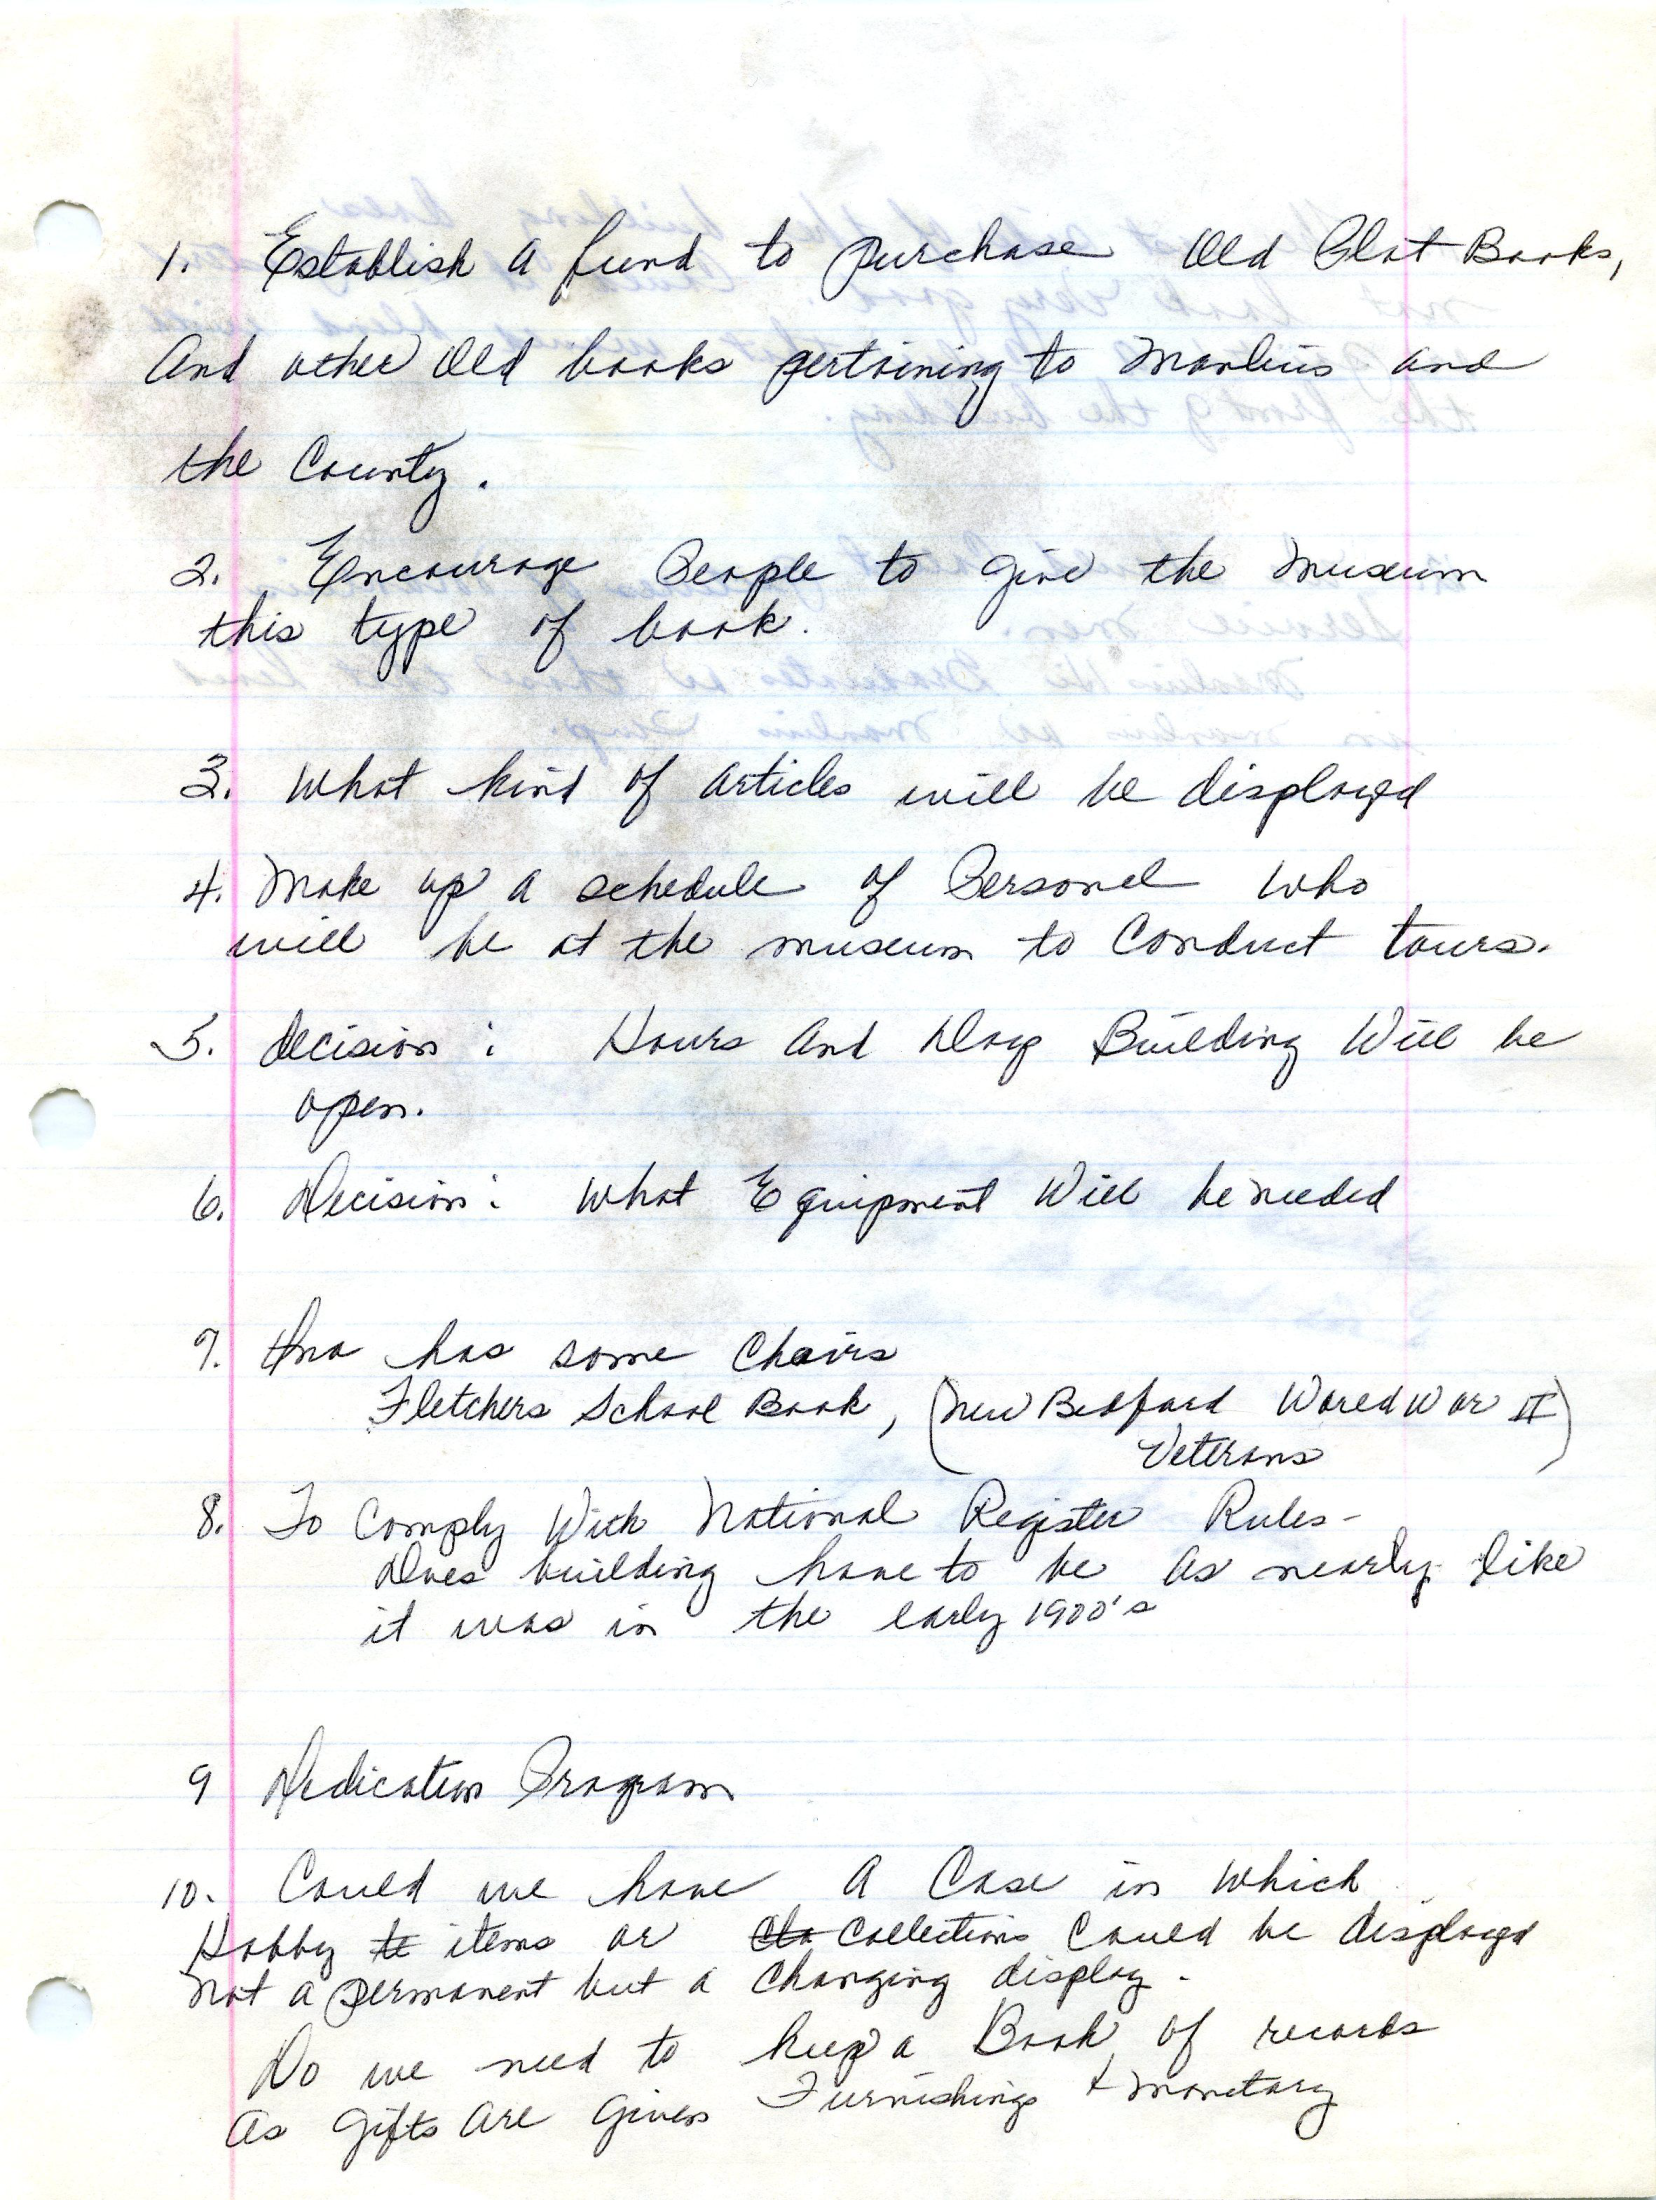 1. Establish a fund to purchase Old Plat Books,
and other old books pertaining to Manlius and
the County.
2. Encourage People to give the Museum
this type of book.
3. What kind of articles will be displayed
4. Make up a schedule of Personel who
will be at the museum to Conduct tours.
5. decision: Hours and Day Building Will be
open.
6. Decision: What Equipment Will be needed
7. has some Chairs
Fletchers School Book, (New Bedford World War II)
Veterans
8. To Comply With National Register Rules-
Does building have to be as nearly like
it was in the early 1900's
9 Dedication Program
10. Could we have A Case in which
Hobby te items or Clo Collections Could be displayed
Not a permanent but a Changing display.
Do we need to keep a Book of records
As Gifts Are Given Furnishings & Monetary